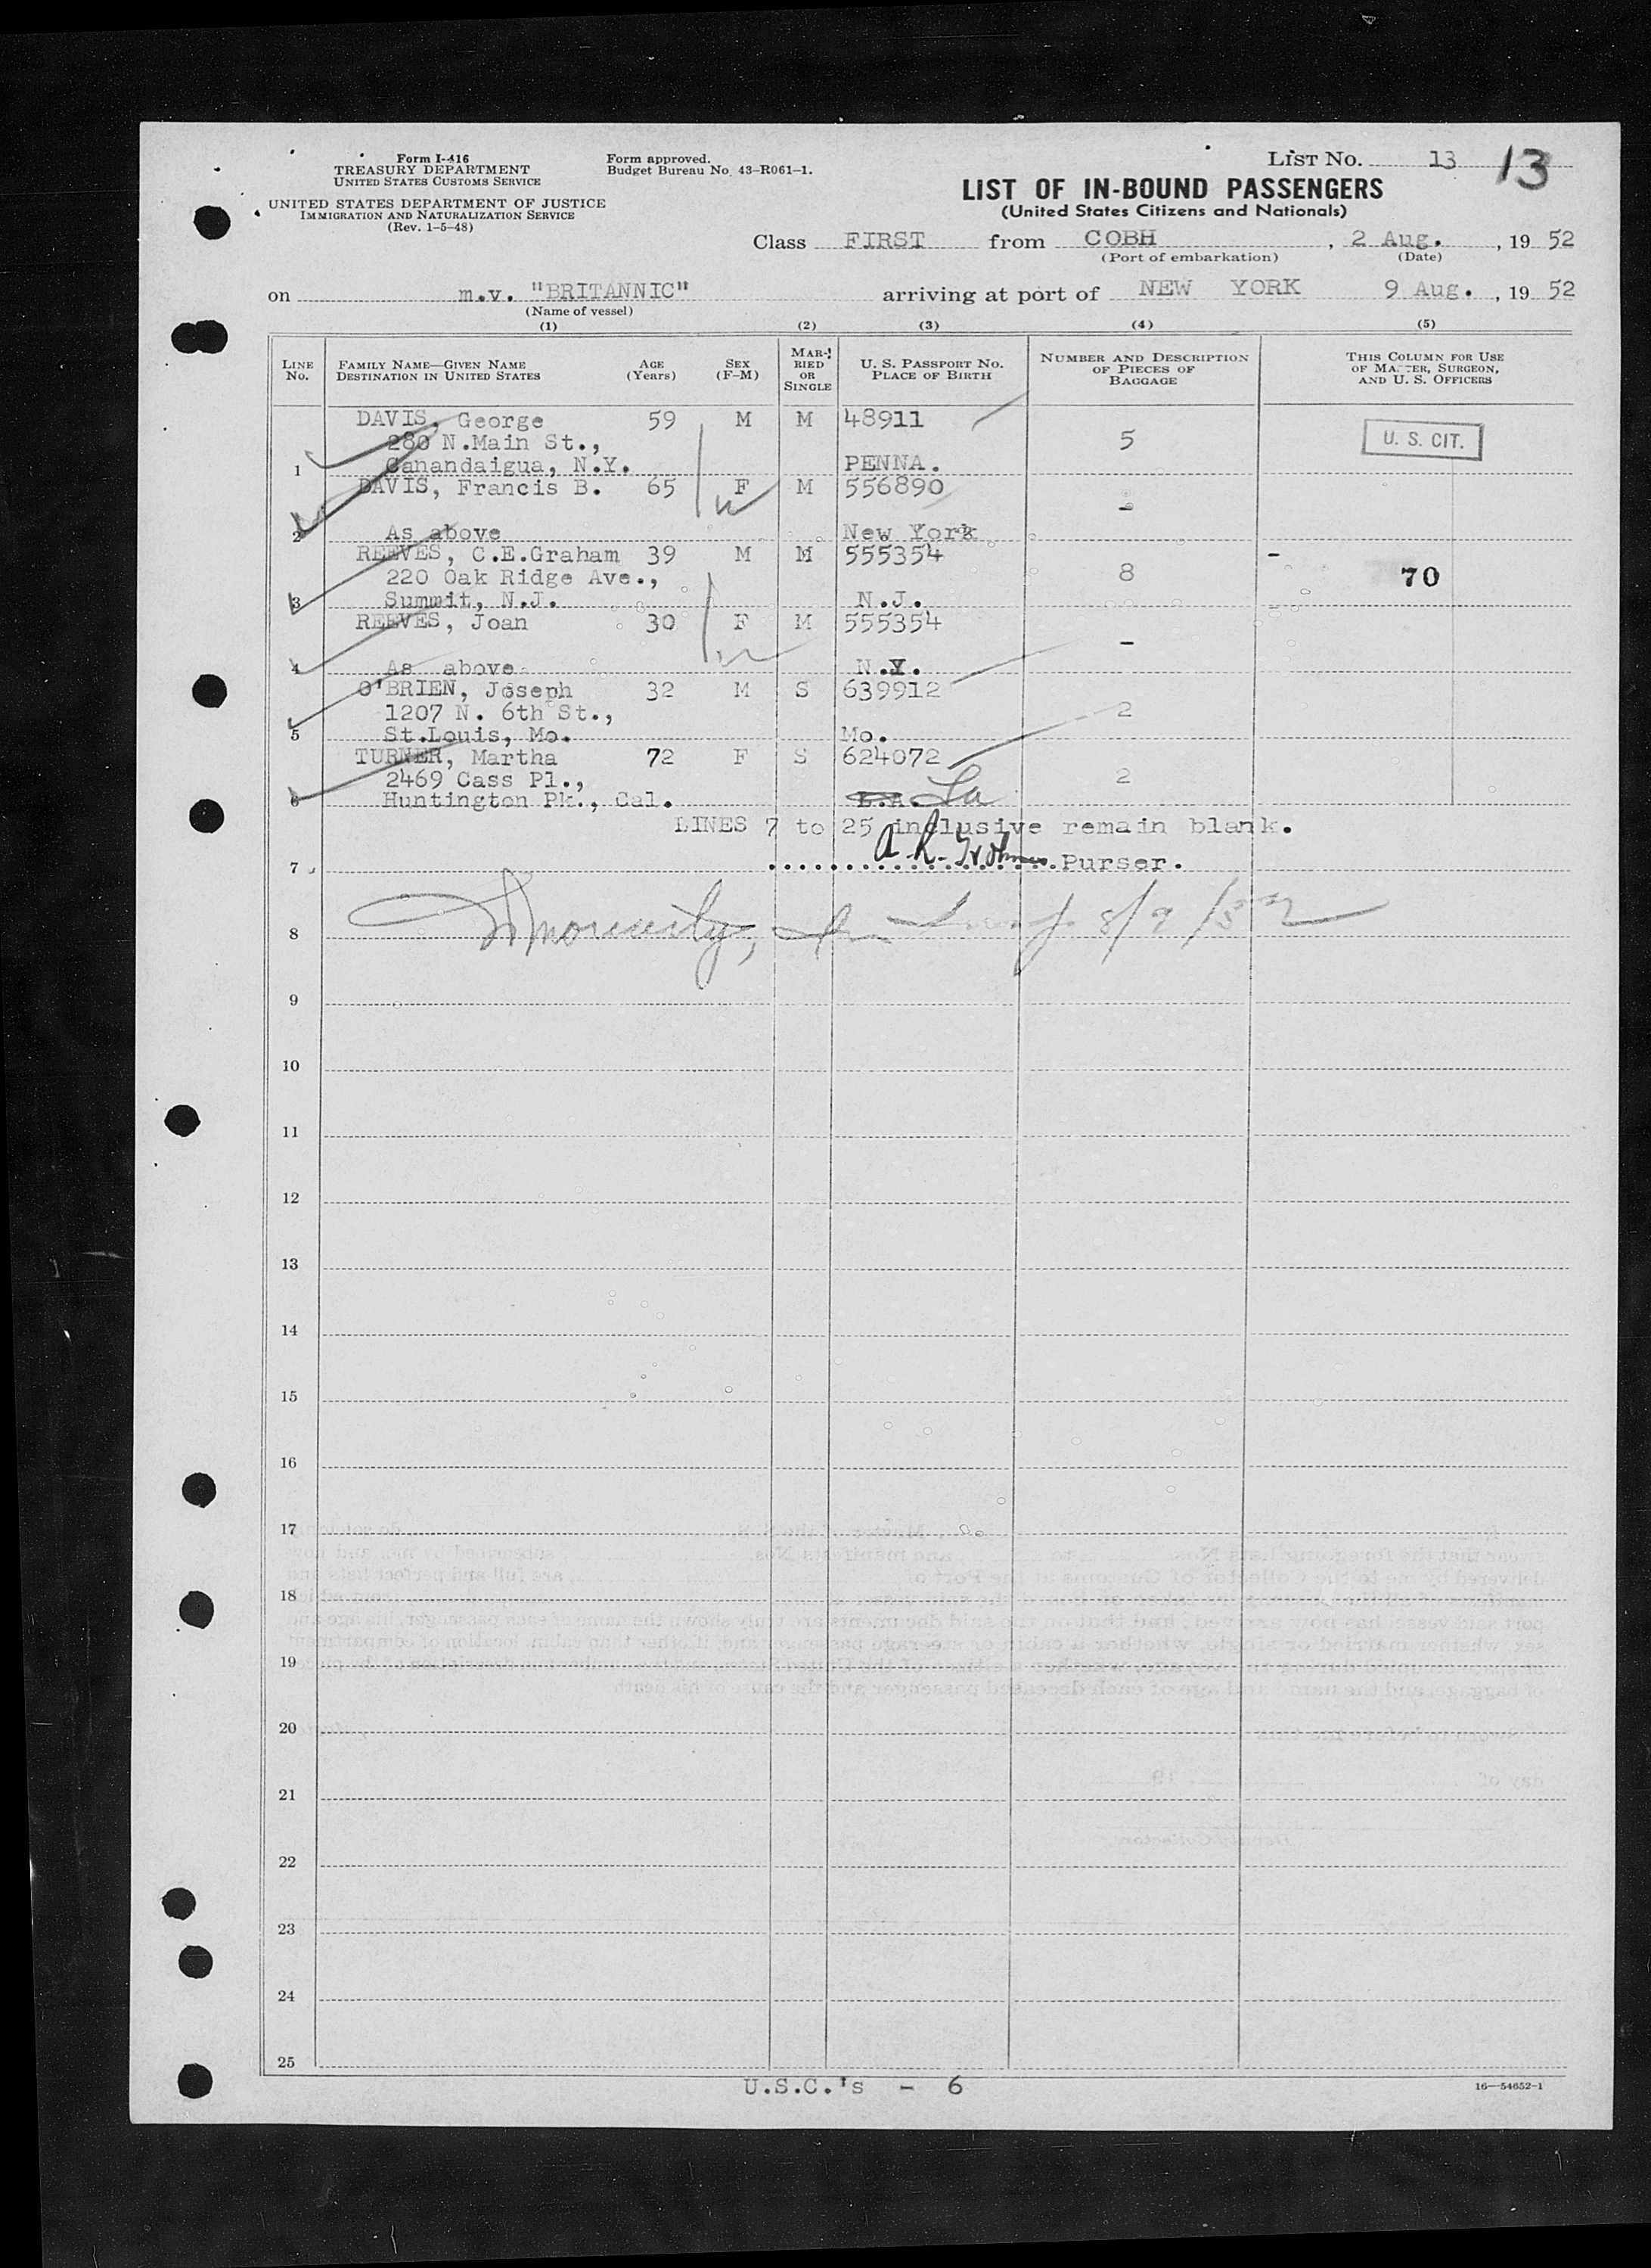 Form I-416
TREASURY DEPARTMENT
UNITED STATES CUSTOMS SERVICE
UNITED STATES DEPARTMENT OF JUSTICE
IMMIGRATION AND NATURALIZATION SERVICE
(Rev. 1-5-48)
Form approved.
Budget Bureau No. 43-R061-1.
LIST No. 13 13
LIST OF IN-BOUND PASSENGERS
(United States Citizens and Nationals)
Class FIRST from COBH, 2 Aug., 19 52
(Port of embarkation) (Date)
on m.v. "BRITANNIC" arriving at port of NEW YORK 9 Aug., 19 52
(Name of vessel)
(1) (2) (3) (4) (5)
LINE No. FAMILY NAME—GIVEN NAME DESTINATION IN UNITED STATES AGE (Years) SEX (F-M) MARRIED OR SINGLE U. S. PASSPORT NO. PLACE OF BIRTH NUMBER AND DESCRIPTION OF PIECES OF BAGGAGE THIS COLUMN FOR USE OF MASTER, SURGEON, AND U. S. OFFICERS
DAVIS, George 59 M M 48911
280 N.Main St., 5 U. S. CIT.
1 Canandaigua, N.Y. PENNA.
DAVIS, Francis B. 65 F M 556890
-
2 As above New York
REEVES, C.E.Graham 39 M M 555354 -
220 Oak Ridge Ave., 8 70
3 Summit, N.J. N.J.
REEVES, Joan 30 F M 555354
-
4 As above N.Y.
O'BRIEN, Joseph 32 M S 639912
1207 N. 6th St., 2
5 St.Louis, Mo. Mo.
TURNER, Martha 72 F S 624072
2469 Cass Pl., 2
6 Huntington Pk., Cal. L.A. La
LINES 7 to 25 inclusive remain blank.
7 A R Purser.
8 8/9/52
9
10
11
12
13
14
15
16
17
18
19
20
21
22
23
24
25
U.S.C.'s - 6
16—54652-1